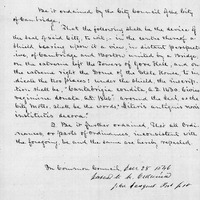 Be it ordained by the City Council of the City
of Cambridge
That the following shall be the device of
the Seal of said City, to wit, in the centre thereof a
Shield bearing upon it a view, in distant perspect-
ive, of Cambridge and Boston united by a Bridge,
on the extreme left the Towers of Gore Hall, and on
the extreme right the Dome of the State House to in-
dicate the two places; under the Shield, the inscrip-
tion shall be, "Cantabrigia condita A.D. 1630, Civica
regimine donata A.D. 1846." around the Seal or the
City Motto, shall be the words "Literis antiquis novis
institutis decora."
2. Be it further ordained, That all Ordi-
nances, or parts of Ordinances inconsistent with
the foregoing be, and the same are hereby repealed.
In Common Council, Dec. 28 1846